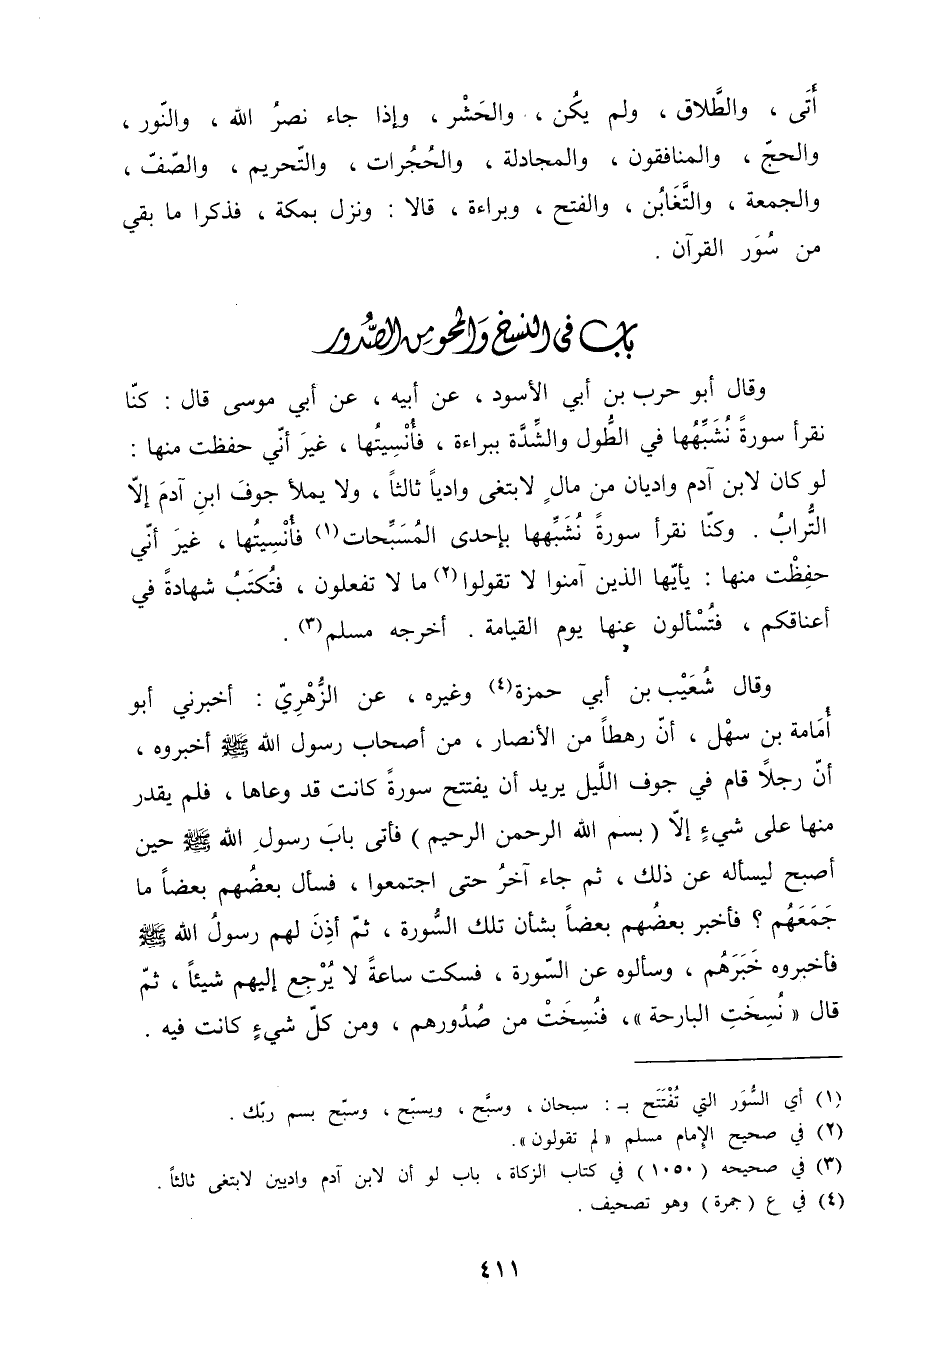 أَتَى ، والطَّلاق ، ولم يكُن ، والحَشْر ، وإذا جاء نصرُ الله ، والنّور ،
والحجّ ، والمنافقون ، والمجادلة ، والحُجُرات ، والتّحريم ، والصّفّ ،
والجمعة ، والتَّغَابُن ، والفتح ، وبراءة ، قالا : ونزل بمكة ، فذكرا ما بقي
من سُوَر القرآن .
باب في النسخ والمحو من الصُّدور
وقال أبو حرب بن أبي الأسود ، عن أبيه ، عن أبي موسى قال : كنّا
نقرأ سورةً نُشَبِّهُها في الطُّول والشِّدَّة ببراءة ، فأُنْسِيتُها ، غيرَ أنّي حفظت منها :
لو كان لابن آدم واديان من مالٍ لابتغى وادياً ثالثاً ، ولا يملأ جوفَ ابنِ آدمَ إلّا
التُّرابُ . وكنّا نقرأ سورةً نُشَبِّهها بإحدى المُسَبِّحات(١) فأُنْسِيتُها ، غيرَ أنّي
حفِظْت منها : يأيّها الذين آمنوا لا تقولوا(٢) ما لا تفعلون ، فتُكتَبُ شهادةً في
أعناقكم ، فتُسْألون عنها يوم القيامة . أخرجه مسلم(٣) .
وقال شُعَيْب بن أبي حمزة(٤) وغيره ، عن الزُّهْريّ : أخبرني أبو
أُمَامة بن سهْل ، أنّ رهطاً من الأنصار ، من أصحاب رسول الله ﷺ أخبروه ،
أنّ رجلاً قام في جوف اللَّيل يريد أن يفتتح سورةً كانت قد وعاها ، فلم يقدر
منها على شيءٍ إلّا ( بسم الله الرحمن الرحيم ) فأتى بابَ رسولِ الله ﷺ حين
أصبح ليسأله عن ذلك ، ثم جاء آخرُ حتى اجتمعوا ، فسأل بعضُهم بعضاً ما
جَمَعَهُم ؟ فأخبر بعضُهم بعضاً بشأن تلك السُّورة ، ثمّ أذِنَ لهم رسولُ الله ﷺ
فأخبروه خَبَرَهُم ، وسألوه عن السّورة ، فسكت ساعةً لا يُرْجِع إليهم شيئاً ، ثمّ
قال « نُسِخَتِ البارحة »، فنُسِخَتْ من صُدُورهم ، ومن كلّ شيءٍ كانت فيه .
(١) أي السُّوَر التي تُفْتَتَح بـ : سبحان ، وسبَّح ، ويسبّح ، وسبّح بسم ربّك .
(٢) في صحيح الإمام مسلم « لم تقولون ».
(٣) في صحيحه ( ١٠٥٠ ) في كتاب الزكاة ، باب لو أن لابن آدم واديين لابتغى ثالثاً .
(٤) في ع ( جمرة ) وهو تصحيف .
٤١١